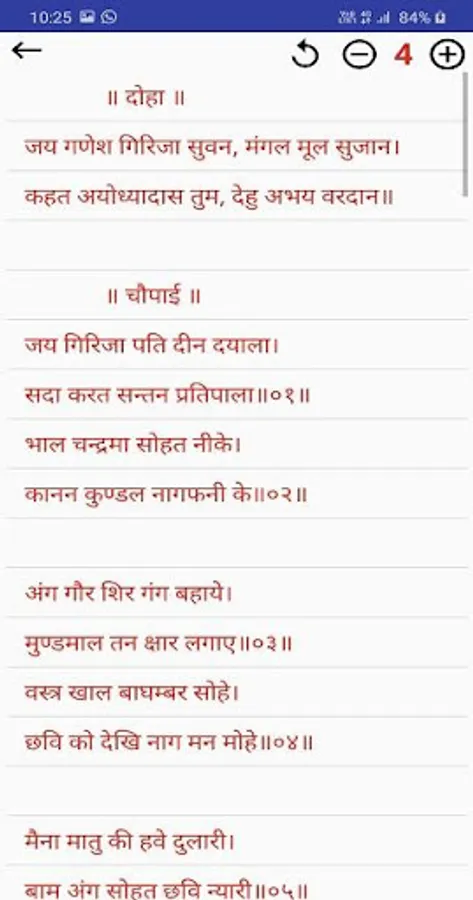 10:25
84%
4
॥ दोहा ॥
जय गणेश गिरिजा सुवन, मंगल मूल सुजान।
कहत अयोध्यादास तुम, देहु अभय वरदान॥
॥ चौपाई ॥
जय गिरिजा पति दीन दयाला।
सदा करत सन्तन प्रतिपाला॥०१॥
भाल चन्द्रमा सोहत नीके।
कानन कुण्डल नागफनी के॥०२॥
अंग गौर शिर गंग बहाये।
मुण्डमाल तन क्षार लगाए॥०३॥
वस्त्र खाल बाघम्बर सोहे।
छवि को देखि नाग मन मोहे॥०४॥
मैना मातु की हवे दुलारी।
बाम अंग सोहत छवि न्यारी॥०५॥